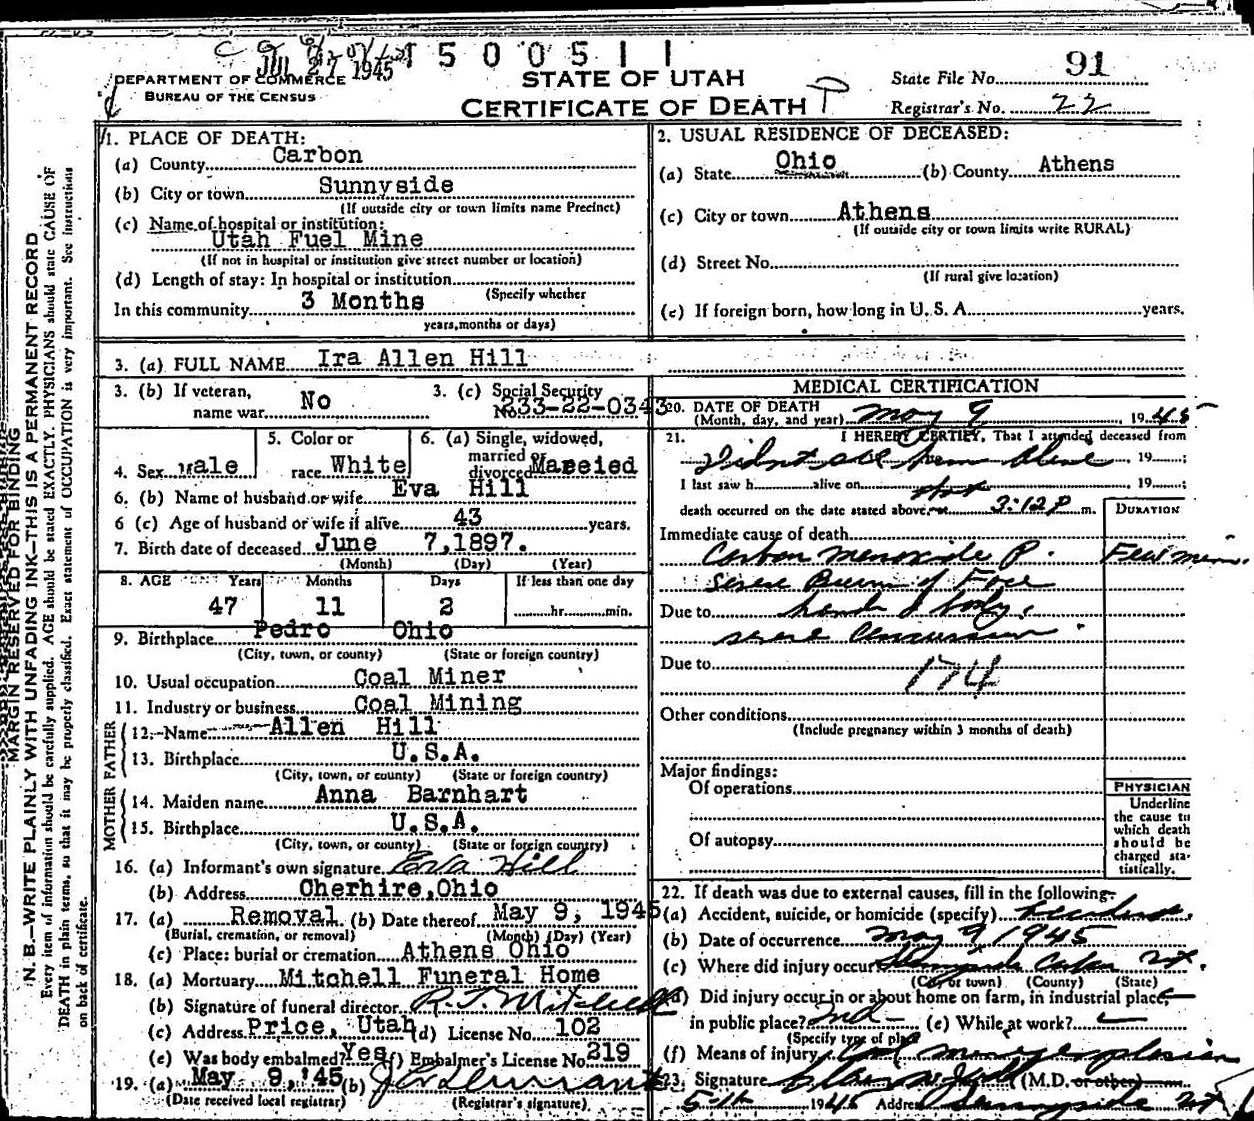 1945 1 5 0 0 5 1 1
DEPARTMENT OF COMMERCE
BUREAU OF THE CENSUS
STATE OF UTAH
CERTIFICATE OF DEATH
State File No. 91
Registrar's No. 22
1. PLACE OF DEATH:
(a) County Carbon
(b) City or town Sunnyside
(If outside city or town limits name Precinct)
(c) Name of hospital or institution:
Utah Fuel Mine
(If not in hospital or institution give street number or location)
(d) Length of stay: In hospital or institution
(Specify whether
In this community 3 Months
years, months or days)
2. USUAL RESIDENCE OF DECEASED:
(a) State Ohio (b) County Athens
(c) City or town Athens
(If outside city or town limits write RURAL)
(d) Street No.
(If rural give location)
(e) If foreign born, how long in U. S. A. years.
3. (a) FULL NAME Ira Allen Hill
3. (b) If veteran, name war No
3. (c) Social Security No. 233-22-0343
4. Sex Male
5. Color or race White
6. (a) Single, widowed, married or divorced Mareied
6. (b) Name of husband or wife Eva Hill
6 (c) Age of husband or wife if alive 43 years.
7. Birth date of deceased June 7,1897.
(Month) (Day) (Year)
8. AGE Years Months Days If less than one day
47 11 2 hr. min.
9. Birthplace Pedro Ohio
(City, town, or county) (State or foreign country)
10. Usual occupation Coal Miner
11. Industry or business Coal Mining
FATHER
12. Name Allen Hill
13. Birthplace U.S.A.
(City, town, or county) (State or foreign country)
MOTHER
14. Maiden name Anna Barnhart
15. Birthplace U.S.A.
(City, town, or county) (State or foreign country)
16. (a) Informant's own signature Eva Hill
(b) Address Cherhire,Ohio
17. (a) Removal (b) Date thereof May 9, 1945
(Burial, cremation, or removal) (Month) (Day) (Year)
(c) Place: burial or cremation Athens Ohio
18. (a) Mortuary Mitchell Funeral Home
(b) Signature of funeral director R. J. Mitchell
(c) Address Price, Utah (d) License No. 102
(e) Was body embalmed? Yes (f) Embalmer's License No. 219
19. (a) May 9, '45 (b)
(Date received local registrar) (Registrar's signature)
MEDICAL CERTIFICATION
20. DATE OF DEATH
(Month, day, and year) May 9, 1945
21. I HEREBY CERTIFY, That I attended deceased from
Didnt see him alive, 19 ;
I last saw h alive on , 19 ;
death occurred on the date stated above, at 3:12 P m.
DURATION
Immediate cause of death
Carbon monoxide P. Few min.
severe Burn of Face
Due to hands & body.
severe Concussion.
Due to
174
Other conditions
(Include pregnancy within 3 months of death)
Major findings:
Of operations
Of autopsy
PHYSICIAN
Underline
the cause to
which death
should be
charged sta-
tistically.
22. If death was due to external causes, fill in the following:
(a) Accident, suicide, or homicide (specify) Accident.
(b) Date of occurrence May 9, 1945
(c) Where did injury occur? Sunnyside Carbon Ut.
(City or town) (County) (State)
(d) Did injury occur in or about home on farm, in industrial place,
in public place? Ind (e) While at work?
(Specify type of place)
(f) Means of injury Coal mine explosion
23. Signature (M.D. or other)
5-11 1945 Address Sunnyside Ut
MARGIN RESERVED FOR BINDING
N. B.—WRITE PLAINLY WITH UNFADING INK—THIS IS A PERMANENT RECORD
Every item of information should be carefully supplied. AGE should be stated EXACTLY. PHYSICIANS should state CAUSE OF
DEATH in plain terms, so that it may be properly classified. Exact statement of OCCUPATION is very important. See instructions
on back of certificate.